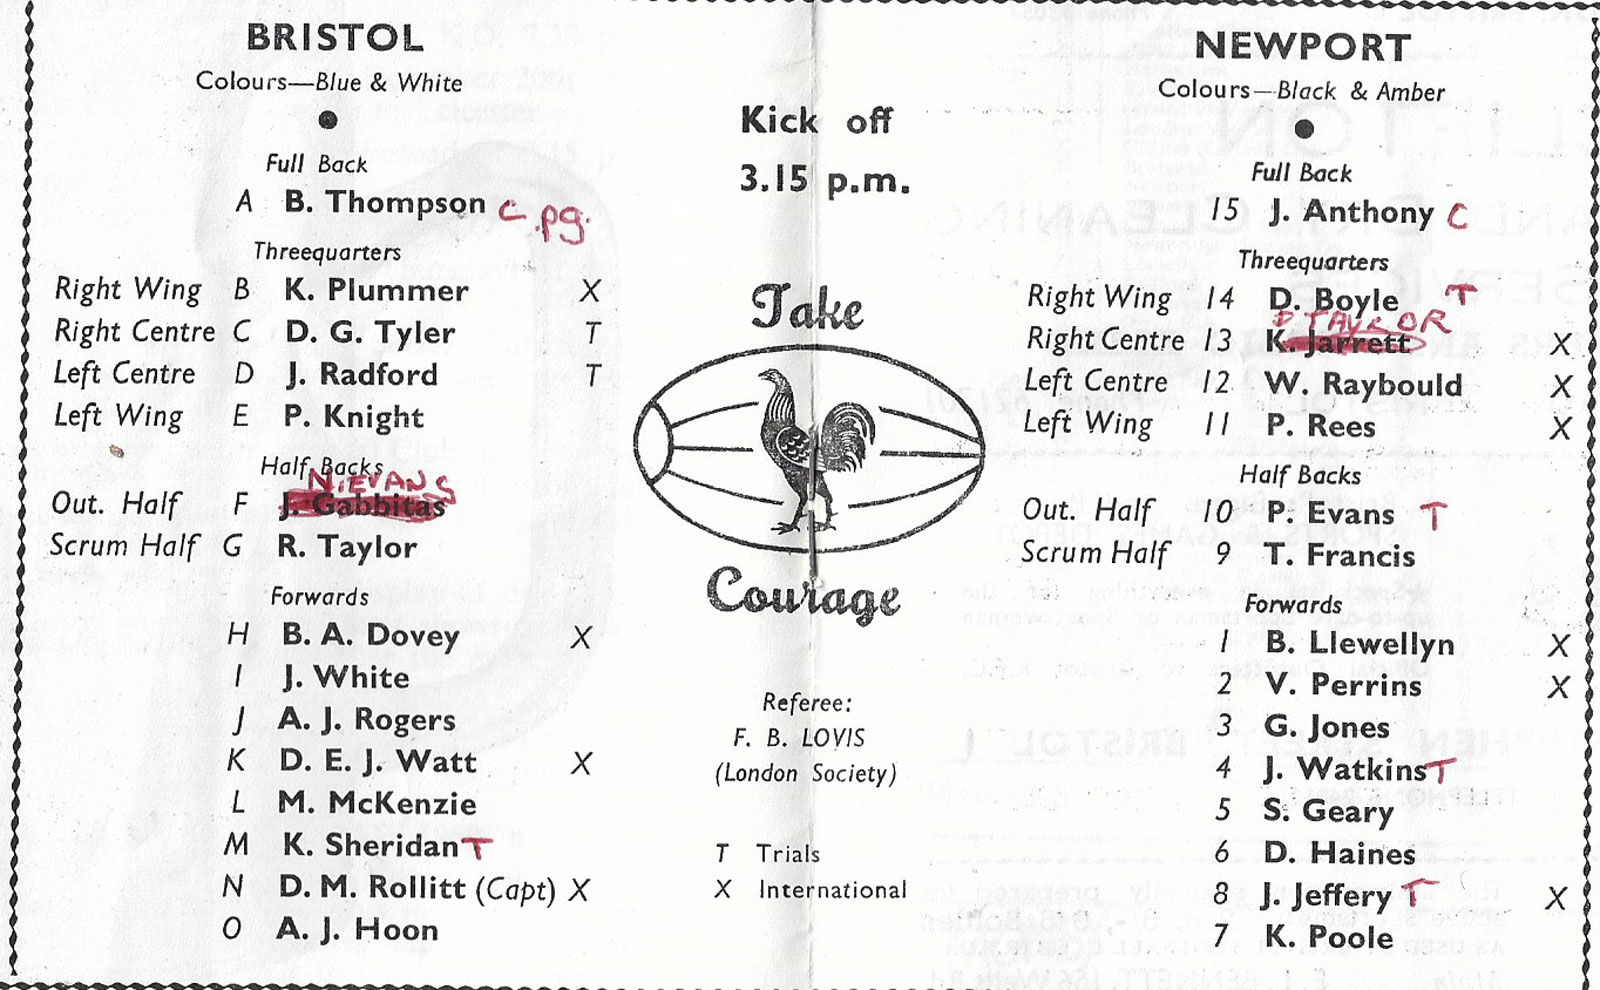 BRISTOL
Colours—Blue & White
Full Back
A B. Thompson C pg.
Threequarters
Right Wing B K. Plummer X
Right Centre C D. G. Tyler T
Left Centre D J. Radford T
Left Wing E P. Knight
Half Backs
N. EVANS
Out. Half F J. Gabbitas
Scrum Half G R. Taylor
Forwards
H B. A. Dovey X
I J. White
J A. J. Rogers
K D. E. J. Watt X
L M. McKenzie
M K. Sheridan T
N D. M. Rollitt (Capt) X
O A. J. Hoon
Kick off
3.15 p.m.
Take
Courage
Referee:
F. B. LOVIS
(London Society)
T Trials
X International
NEWPORT
Colours—Black & Amber
Full Back
15 J. Anthony C
Threequarters
Right Wing 14 D. Boyle T
D TAYLOR
Right Centre 13 K. Jarrett X
Left Centre 12 W. Raybould X
Left Wing 11 P. Rees X
Half Backs
Out. Half 10 P. Evans T
Scrum Half 9 T. Francis
Forwards
1 B. Llewellyn X
2 V. Perrins X
3 G. Jones
4 J. Watkins T
5 S. Geary
6 D. Haines
8 J. Jeffery T X
7 K. Poole